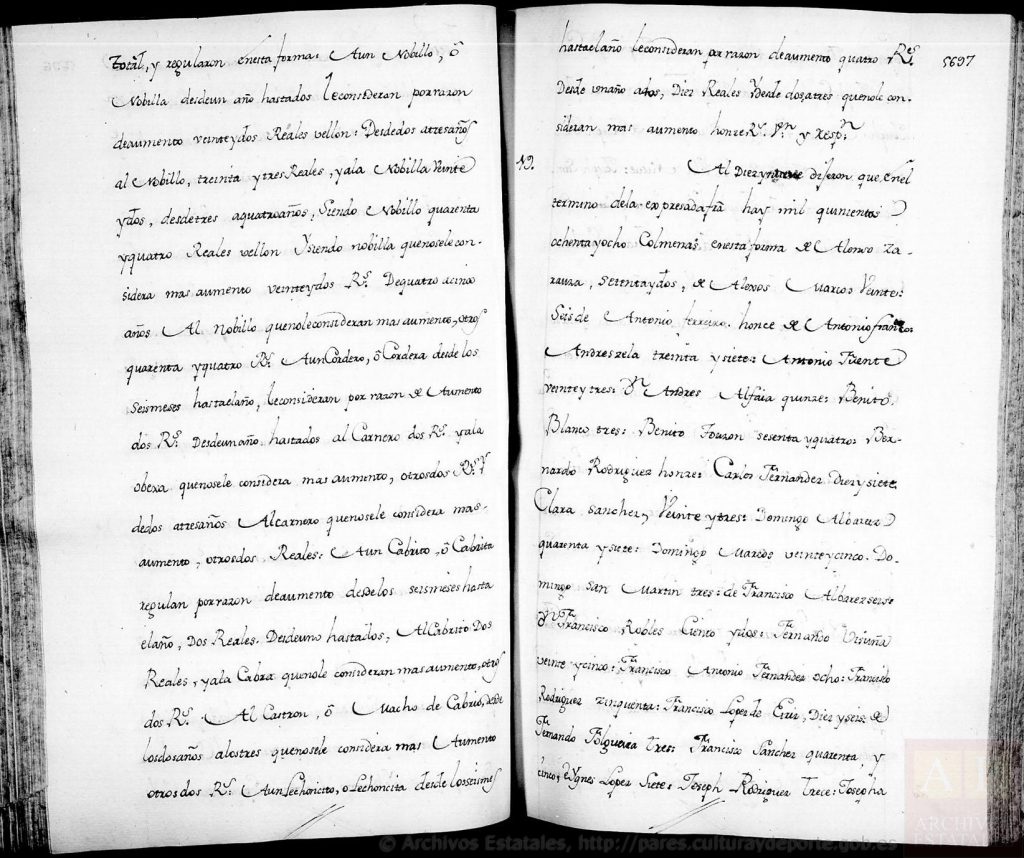 total, y regularon enesta forma: Aun Nobillo, ô
Nobilla desdeun año hastados leconsideran porrazon
deaumento veinteydos Reales vellon: Desdedos atresaños
al Nobillo, treinta ytresReales, yala Nobilla Veinte
ydos, desdetres aquatroaños, Siendo Nobillo quarenta
yquatro Reales vellon Ysiendo nobilla quenoselecon-
sidera mas aumento veinteydos Rs. Dequatro acinco
años Al Nobillo quenoleconsideran mas aumento, otros
quarenta yquatro Rs. AunCordero, ô Cordera desde los
Seismeses hastaelaño, leconsideran por razon de Aumento
dos Rs. Desdeunaño, hastados al Carnero dos Rs. yala
obexa quenosele considera mas aumento, otrosdos Rs. Y
dedos atresaños Alcarnero quenosele considera mas-
aumento, otrosdos Reales. Aun Cabrito, ô Cabrita
regulan porrazon deaumento desdelos seismeses hasta
elaño, Dos Reales. Desdeuno hastados, AlCabrito Dos
Reales, yala Cabra quenole consideran mas aumento, otros
dos Rs. Al Castron, ô Macho de Cabrio, desde
losdosaños alostres quenosele considera mas Aumento
otrosdos Rs. AunLechoncito, o Lechoncita desde losseismeses
hastaelaño leconsideran porrazon deaumento quatro Rs.
5697
Desde unaño ados, Diez Reales Ydesde dosatres quenole con-
sideran mas aumento honze Rs. Vn. y Respn.
19.
Al Diezynueve dijeron que enel
termino dela expresadafra hay mil quinientos
ochentayocho Colmenas, enesta forma de Alonso Za-
rauza, setentaydos, de Alexos Marcos Veinte:
Seis de Antonio ferreiro: honce de Antonio franco:
Andreszela treinta ysiete: Antonio Fuente
veinteytres: Dn. Andres Alfaia quinze: Benito
Blanco tres: Benito Touzon sesenta yquatro: Ber-
nardo Rodriguez honze: Carlos Fernandez Diezysiete
Clara Sanchez, Veinte ytres: Domingo Albarez
quarenta ysiete: Domingo Marcos veinteycinco. Do-
mingo san Martin tres: de Francisco Albarezseis:
Dn. Francisco Robles Ciento ydos: Fernando
veinte ycinco: Francisco Antonio Fernandez ocho: Francisco
Rodriguez zinquenta: Francisco Lopez de Diezyseis de
Fernando Folgueira Tres: Francisco Sanchez quarenta y
cinco, Ygnes Lopez Siete: Joseph Rodriguez Trece: Josepha
© Archivos Estatales, http://pares.culturaydeporte.gob.es
ARCHIVOS
ESTATALES